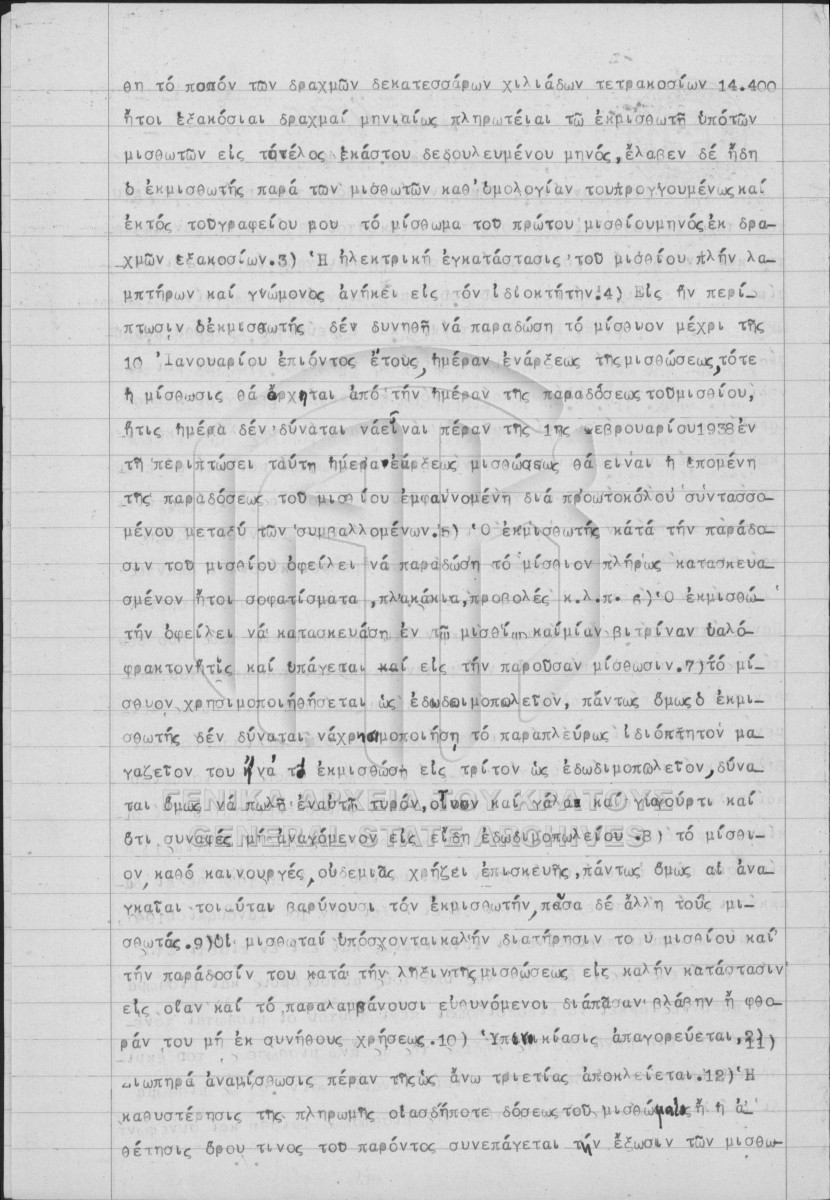 θη τό ποσόν των δραχμῶν δεκατεσσάρων χιλιάδων τετρακοσίων 14.400
ἤτοι ἑξακόσιαι δραχμαί μηνιαίως πληρωτέιαι τῶ ἐκμισθωτῆ ὑπότῶν
μισθωτῶν εἰς τότέλος ἑκάστου δεδουλευμένου μηνός, ἔλαβεν δέ ἤδη
ὁ ἐκμισθωτής παρά των μισθωτῶν καθ'ὁμολογίαν τουπρογγουμένωςκαί
ἐκτός τοῦγραφείου μου τό μίσθωμα τοῦ πρώτου μισθίουμηνόςἐκ δρα-
χμῶν εξακοσίων.3) Ἡ ἠλεκτρική ἐγκατάστασις τοῦ μισθίου πλήν λα-
μπτήρων καί γνώμονος ἀνήκει εἰς τόν ἰδιοκτήτην.4) Εἰς ἥν περί-
πτωσιν ὁἐκμισθωτής δέν δυνηθῆ νά παραδώση τό μίσθιον μέχρι τῆς
10 Ἰανουαρίου ἐπιόντος ἔτους, ἡμέραν ἐνάρξεως τῆςμισθώσεως, τότε
ἡ μίσθωσις θά ἄρχηται ἀπό τήν ἡμέραν τῆς παραδόσεως τοῦμισθίου,
ἥτις ἡμέρα δέν δύναται νάεἶναι πέραν τῆς 1ης φεβρουαρίου1938ἐν
τῆ περιπτώσει ταύτη ἡμέραἐάρξεως μισθώσεως θά εἶναι ἡ ἑπομένη
τῆς παραδόσεως τοῦ μισθίου ἐμφαινομένη διά πρωτοκόλου συντασσο-
μένου μεταξύ τῶν συμβαλλομένων.5) Ὁ ἐκμισθωτής κατά τήν παράδο-
σιν τοῦ μισθίου ὀφείλει νά παραδώση τό μίσθιον πλήρως κατασκευα-
σμένον ἤτοι σοφατίσματα ,πλακάκια,προβολές κ.λ.π. 6)Ὁ ἐκμισθω-
τήν ὀφείλει νά κατασκευάση ἐν τῶ μισθίω καίμίαν βιτρίναν ὑαλό-
φρακτονἥτις καί ὑπάγεται καί εἰς τήν παροῦσαν μίσθωσιν.7)τό μί-
σθυον χρησιμοποιήθήσεται ὡς ἐδωδιμοπωλεῖον, πάντως ὅμωςὁ ἐκμι-
σθωτής δέν δύναται νάχρησιμοποιήση τό παραπλεύρως ἰδιόκτητον μα-
γαζεῖον του ἤ νά τό ἐκμισθώση εἰς τρίτον ὡς ἐδωδιμοπωλεῖον, δύνα-
ται ὅμως νά πωλῆ ἐναὐτῆ τυρόν, οἶνον καί γάλα καί γιαούρτι καί
ὅτι συναφές μή ἀναγόμενον εἰς εἴδη ἐδωδιμοπωλείου .8) τό μίσθι-
ον, καθό καινουργές, οὐδεμιᾶς χρήζει ἐπισκευῆς, πάντως ὅμως αἱ ἀνα-
γκαῖαι τοιαῦται βαρύνουσι τόν ἐκμισθωτήν, πᾶσα δέ ἄλλη τούς μι-
σθωτάς.9)Οἱ μισθωταί ὑπόσχονταικαλήν διατήρησιν το υ μισθίου καί
τήν παράδοσίν του κατά τήν λῆξιντῆςμισθώσεως εἰς καλήν κατάστασιν
εἰς οἵαν καί τό παραλαμβάνουσι εὐθυνόμενοι διάπᾶσαν βλάβην ἤ φθο-
ράν του μή ἐκ συνήθους χρήσεως.10) Ὑπενοικίασις ἀπαγορεύεται, 11)
Σιωπηρά ἀναμίσθωσις πέραν τῆςὡς ἄνω τριετίας ἀποκλείεται.12)Ἡ
καθυστέρησις τῆς πληρωμῆς οἱασδήποτε δόσεως τοῦ μισθώματος ἤ ἡ ἀ-
θέτησις ὅρου τινος τοῦ παρόντος συνεπάγεται τήν ἔξωσιν τῶν μισθω-
ΓΕΝΙΚΑ ΑΡΧΕΙΑ ΤΟΥ ΚΡΑΤΟΥΣ
GENERAL STATE ARCHIVES